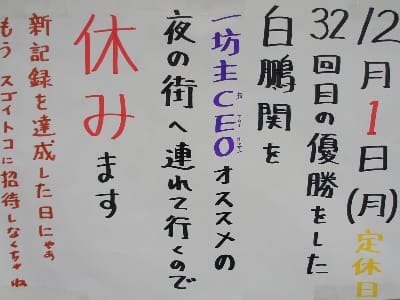 12月1日(月)定休日
32回目の優勝をした
白鵬関を
一坊主CEOオススメの
夜の街へ連れて行くので
休みます
新記録を達成した日にゃぁ
もう スゴイトコに招待しなくちゃね